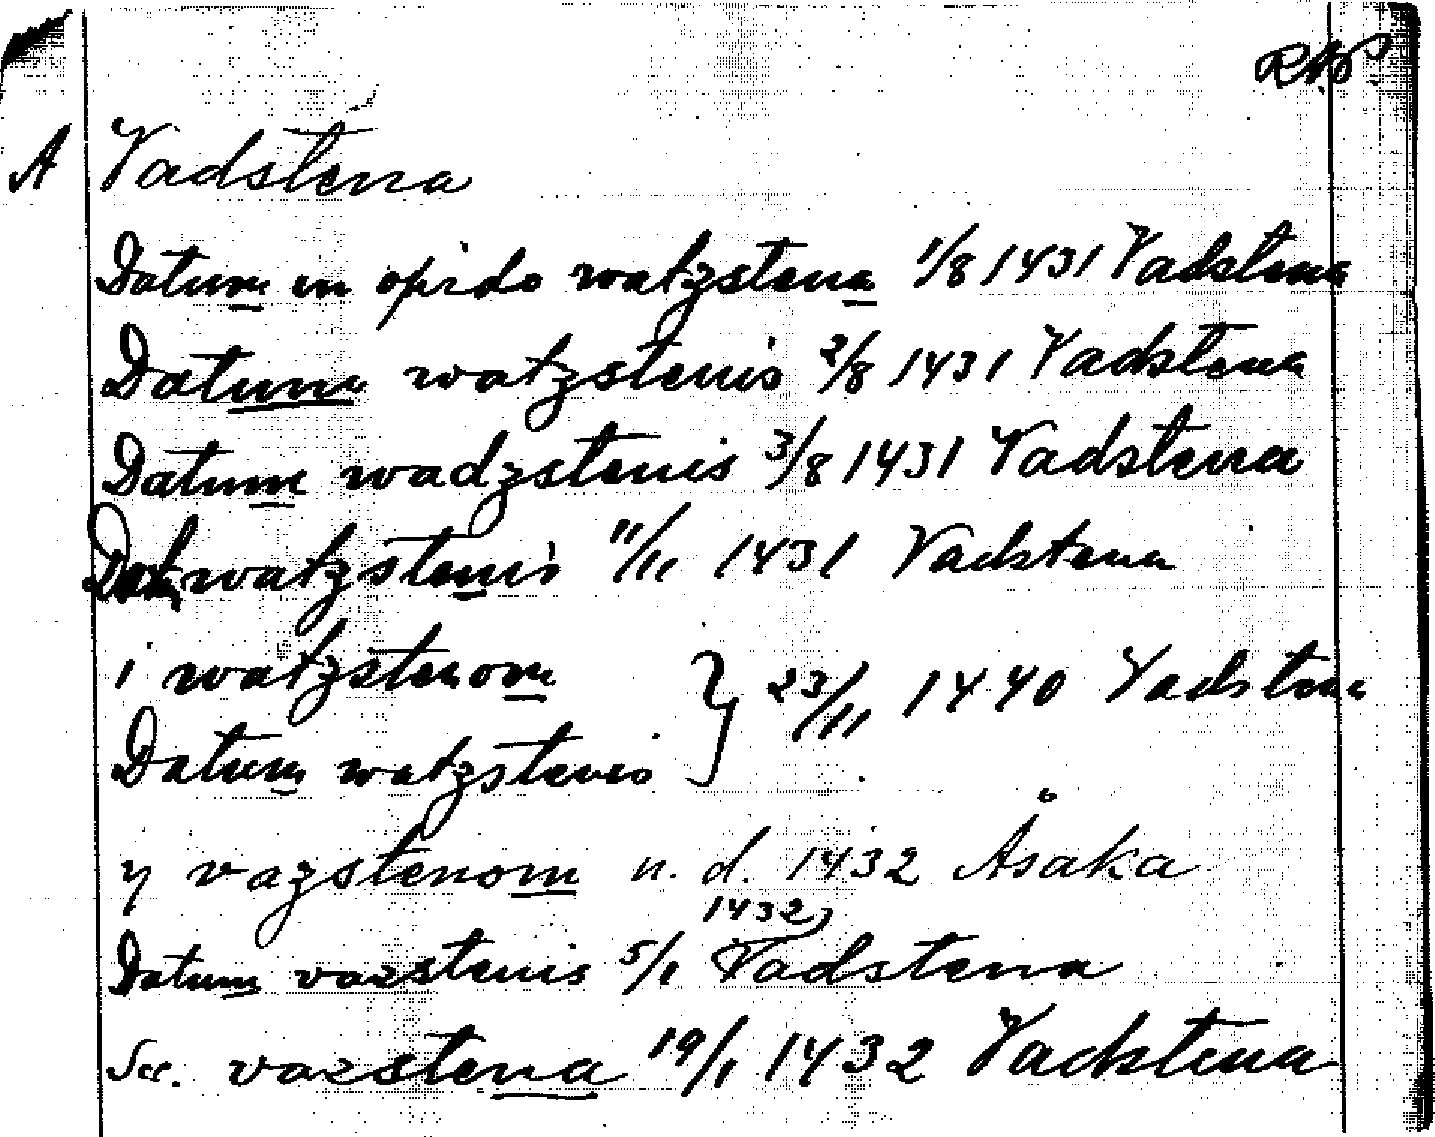 RAP.
A Vadstena
Datum in opido watzstena 1/8 1431 Vadstena
Datum watzstenis 2/8 1431 Vadstena
Datum wadzstenis 3/8 1431 Vadstena
Dat watzstenis 11/11 1431 Vadstena
i watzstenom } 23/11 1440 Vadstena
Datum watzstenis
y vazstenom u. d. 1432 Åsaka
1432
Datum vazstenis 5/1 Vadstena
vazstena 19/1 1432 Vadstena